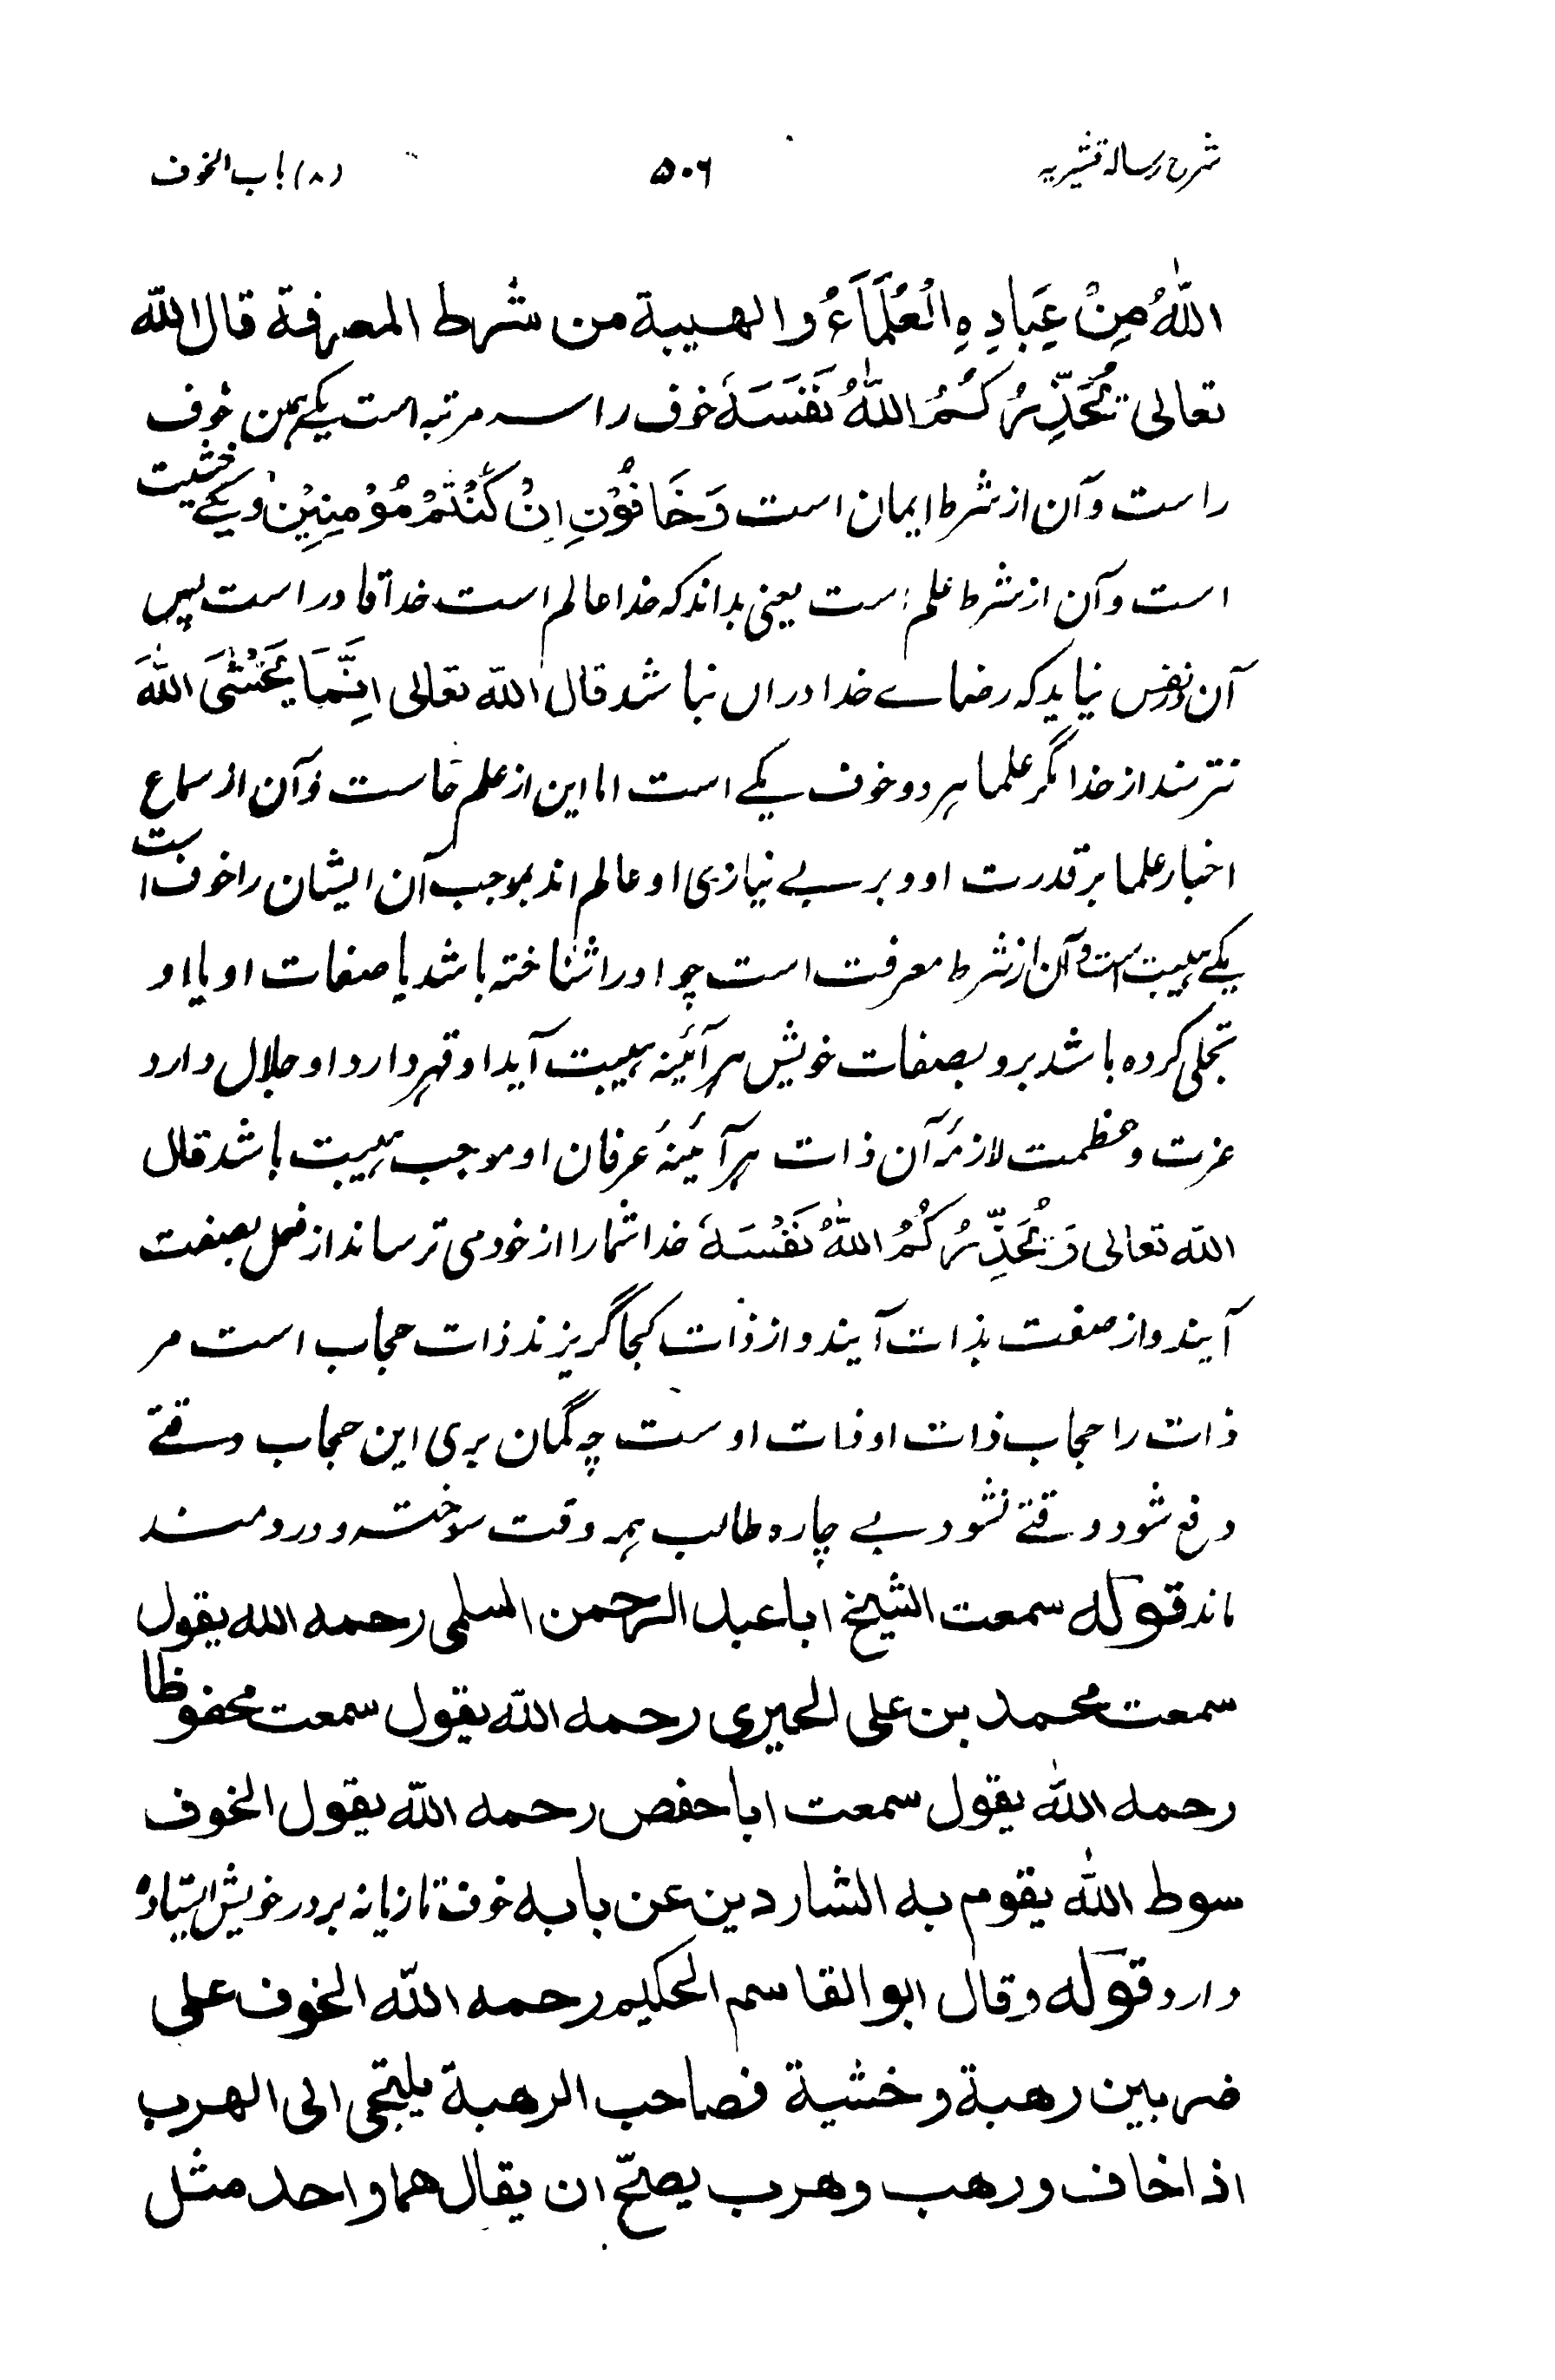 شرح رساله قشیریه ۵۰۶ (۸) باب الخوف
اللّٰهُ مِنْ عِبَادِهِ الْعُلَمَآءُ والهيبة من شرط المعرفة قال الله
تعالى يُحَذِّرُكُمُ اللّٰهُ نَفْسَهٗ خوف را سه مرتبه است یکے همین خوف
راست و آن از شرط ایمان است وَخَافُوْنِ اِنْ كُنْتُمْ مُؤْمِنِيْنَ و یکے خشیت
است و آن از شرط علم است یعنی بداند که خدا عالم است خدا قادر است پس
آن در نفس نیاید که رضاے خدا دران نباشد قال الله تعالى اِنَّمَا يَخْشَى اللّٰهَ
نترسند از خدا مگر علما هر دو خوف یکے است اما این از علم خاست و آن از سماع
اخبار علما بر قدرت او و بر بے نیازی او عالم اند بموجب آن ایشان را خوف است
یکے هیبت است و آن از شرط معرفت است چو او را شناخته باشد با صفات او یا او
تجلی کرده باشد برو بصفات خویش هر آئینه هیبت آید او قهر دارد او جلال دارد
عزت و عظمت لازمۂ آن ذات هر آئینۂ عرفان او موجب هیبت باشد قال
الله تعالى وَيُحَذِّرُكُمُ اللّٰهُ نَفْسَهٗ خدا شما را از خود می ترساند از فعل بصفت
آیند و از صفت بذات آیند و از ذات کجا گریزند ذات حجاب است مر
ذات را حجاب ذات او ذات اوست چه گمان بری این حجاب وقتے
دفع شود وقتے نشود بے چاره طالب همه وقت سوخته و دردمند
ماند قوله سمعت الشيخ ابا عبد الرحمن السلمى رحمه الله يقول
سمعت محمد بن على الحيرى رحمه الله يقول سمعت محفوظا
رحمه الله يقول سمعت ابا حفص رحمه الله يقول الخوف
سوط الله يقوم به الشاردين عن بابه خوف تازیانه بر در خویش استاده
دارد قوله وقال ابو القاسم الحكيم رحمه الله الخوف على
ضربين رهبة وخشية فصاحب الرهبة يلتجى الى الهرب
اذا خاف ورهب وهرب يصحّ ان يقال هما واحد مثل